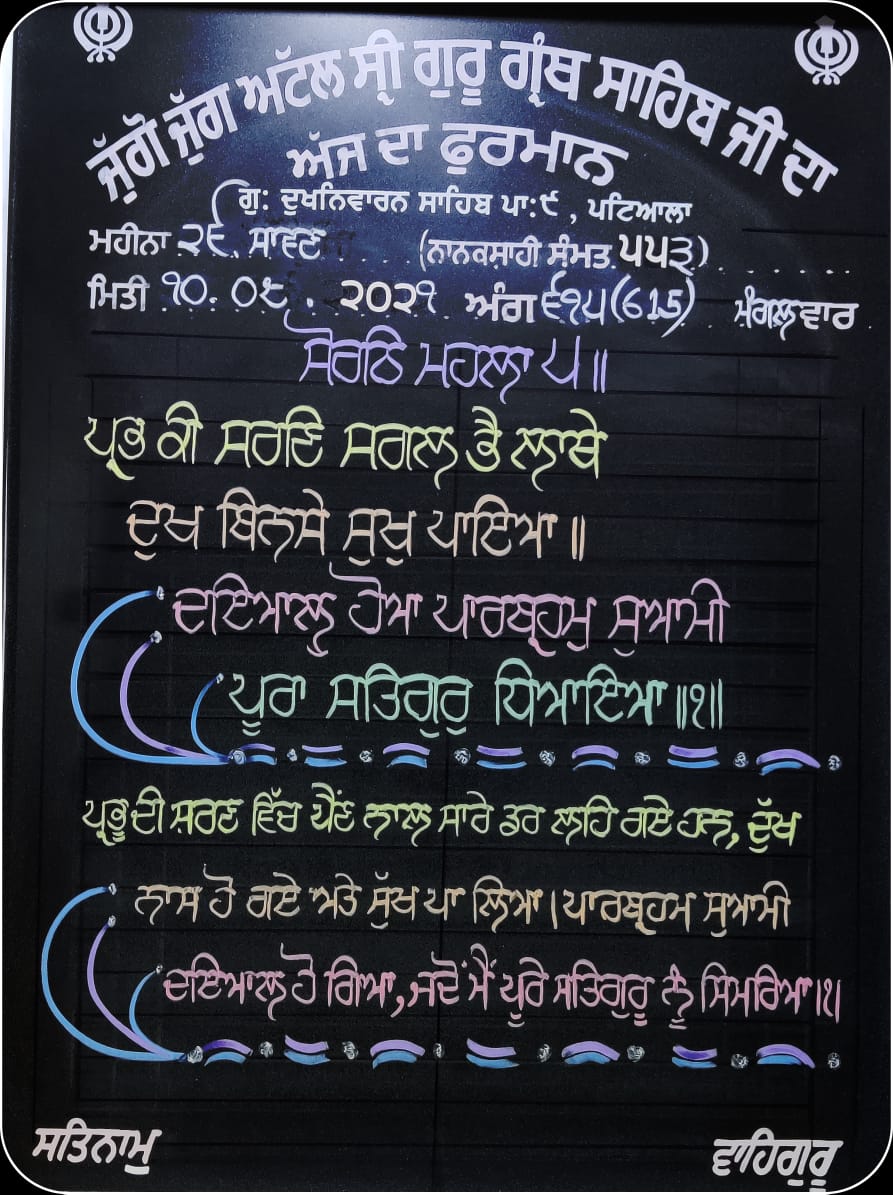 ਜੁੱਗੋ ਜੁੱਗ ਅਟੱਲ ਸ੍ਰੀ ਗੁਰੂ ਗ੍ਰੰਥ ਸਾਹਿਬ ਜੀ ਦਾ
ਅੱਜ ਦਾ ਫੁਰਮਾਨ
ਗੁ: ਦੁਖਨਿਵਾਰਨ ਸਾਹਿਬ ਪਾ:੯, ਪਟਿਆਲਾ
ਮਹੀਨਾ ੨੬ ਸਾਵਣ (ਨਾਨਕਸ਼ਾਹੀ ਸੰਮਤ ੫੫੩)
ਮਿਤੀ ੧੦. ੦੮. ੨੦੨੧ ਅੰਗ ੬੧੫ (615) ਮੰਗਲਵਾਰ
ਸੋਰਠਿ ਮਹਲਾ ੫ ॥
ਪ੍ਰਭ ਕੀ ਸਰਣਿ ਸਗਲ ਭੈ ਲਾਥੇ
ਦੁਖ ਬਿਨਸੇ ਸੁਖੁ ਪਾਇਆ ॥
ਦਇਆਲੁ ਹੋਆ ਪਾਰਬ੍ਰਹਮੁ ਸੁਆਮੀ
ਪੂਰਾ ਸਤਿਗੁਰੁ ਧਿਆਇਆ ॥੧॥
ਪ੍ਰਭੂ ਦੀ ਸ਼ਰਣ ਵਿੱਚ ਪੈਂਣ ਨਾਲ ਸਾਰੇ ਡਰ ਲਹਿ ਗਏ ਹਨ, ਦੁੱਖ
ਨਾਸ ਹੋ ਗਏ ਅਤੇ ਸੁੱਖ ਪਾ ਲਿਆ। ਪਾਰਬ੍ਰਹਮ ਸੁਆਮੀ
ਦਇਆਲ ਹੋ ਗਿਆ, ਜਦੋਂ ਮੈਂ ਪੂਰੇ ਸਤਿਗੁਰੂ ਨੂੰ ਸਿਮਰਿਆ।੧।
ਸਤਿਨਾਮੁ
ਵਾਹਿਗੁਰੂ